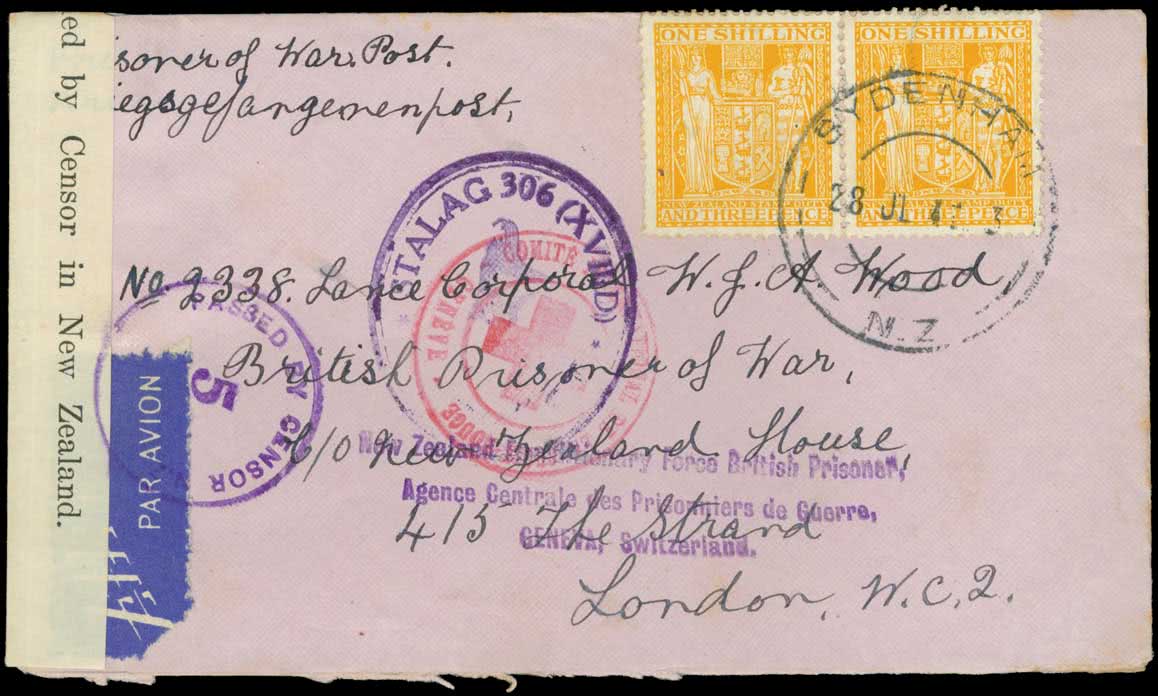 ed by Censor in New Zealand.
soner of War. Post.
iegsgefangenenpost,
ONE SHILLING
AND THREEPENCE
ONE SHILLING
AND THREEPENCE
NEW ZEALAND STAMP DUTY
SYDENHAM
28 JL 41 3
N.Z
STALAG 306 (XVIIID)
COMITÉ
GENÈVE
ROUGE
No 2338. Lance Corporal W. J. A. Wood,
British Prisoner of War,
C/o New Zealand House,
415 The Strand
London, W.C.2.
PASSED BY CENSOR
5
PAR AVION
New Zealand Expeditionary Force British Prisoner,
Agence Centrale des Prisonniers de Guerre,
GENEVA, Switzerland.